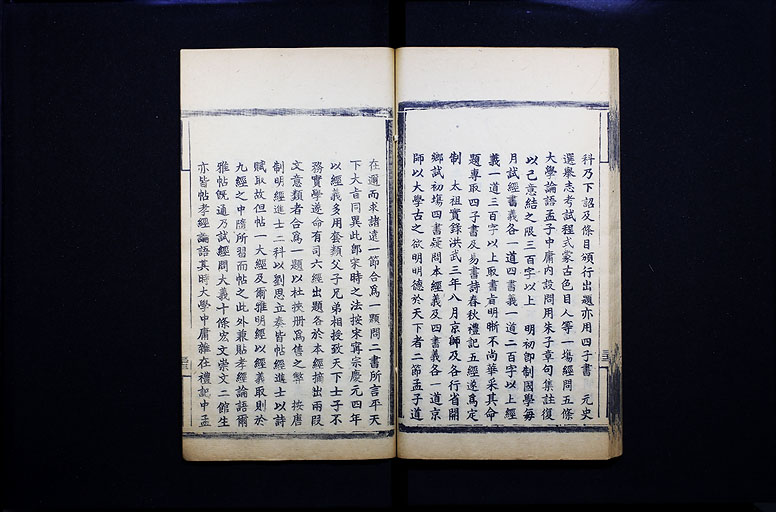 科乃下詔及條目頒行出題亦用四子書　元史
選舉志考試程式蒙古色目人等一塲經問五條
大學論語孟子中庸内設問用朱子章句集註復
以己意結之限三百字以上　明初卽制國學每
月試經書義各一道四書義一道二百字以上經
義一道三百字以上取書旨明晰不尚華采其命
題專取四子書及易書詩春秋禮記五經遂爲定
制　太祖實錄洪武三年八月京師及各行省開
鄉試初塲四書疑問本經義及四書義各一道京
師以大學古之欲明明德於天下者二節孟子道
在邇而求諸遠一節合爲一題問二書所言平天
下大旨同異此卽宋時之法按宋寗宗慶元四年
以經義多用套類父子兄弟相授致天下士子不
務實學遂命有司六經出題各於本經摘出兩段
文意類者合爲一題以杜挾册爲僞之弊　按唐
制明經進士二科以劉思立奏皆帖經進士以詩
賦取故但帖一大經及爾雅明經以經義取則於
九經之中隋所習而帖之此外兼貼孝經論語爾
雅帖旣通乃試經問大義十條宏文崇文二館生
亦皆帖孝經論語其時大學中庸雜在禮記中孟